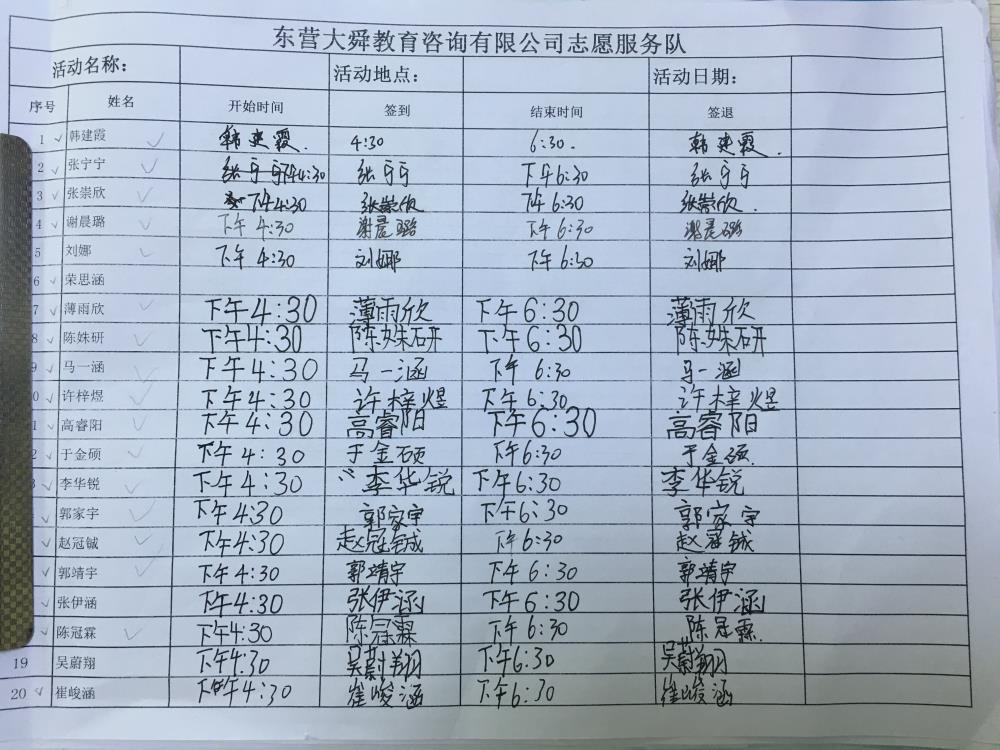 东营大舜教育咨询有限公司志愿服务队
活动名称： 活动地点： 活动日期：
序号 姓名 开始时间 签到 结束时间 签退
1 韩建霞 韩建霞. 4:30 6:30. 韩建霞.
2 张宁宁 张宁宁 下午4:30 张宁宁 下午6:30 张宁宁
3 张崇欣 下午4:30 张崇欣 下午6:30 张崇欣.
4 谢晨璐 下午4:30 谢晨璐 下午6:30 谢晨璐
5 刘娜 下午4:30 刘娜 下午6:30 刘娜
6 荣思涵
7 薄雨欣 下午4:30 薄雨欣 下午6:30 薄雨欣
8 陈姝研 下午4:30 陈姝研 下午6:30 陈姝研
9 马一涵 下午4:30 马一涵 下午6:30 马一涵
0 许梓煜 下午4:30 许梓煜 下午6:30 许梓煜
1 高睿阳 下午4:30 高睿阳 下午6:30 高睿阳
2 于金硕 下午4:30 于金硕 下午6:30 于金硕.
3 李华锐 下午4:30 李华锐 下午6:30 李华锐
郭家宇 下午4:30 郭家宇 下午6:30 郭家宇
赵冠铖 下午4:30 赵冠铖 下午6:30 赵冠铖
郭靖宇 下午4:30 郭靖宇 下午6:30 郭靖宇
张伊涵 下午4:30 张伊涵 下午6:30 张伊涵
陈冠霖 下午4:30 陈冠霖 下午6:30 陈冠霖.
19 吴蔚翔 下午4:30 吴蔚翔 下午6:30 吴蔚翔
20 崔峻涵 下午4:30 崔峻涵 下午6:30 崔峻涵